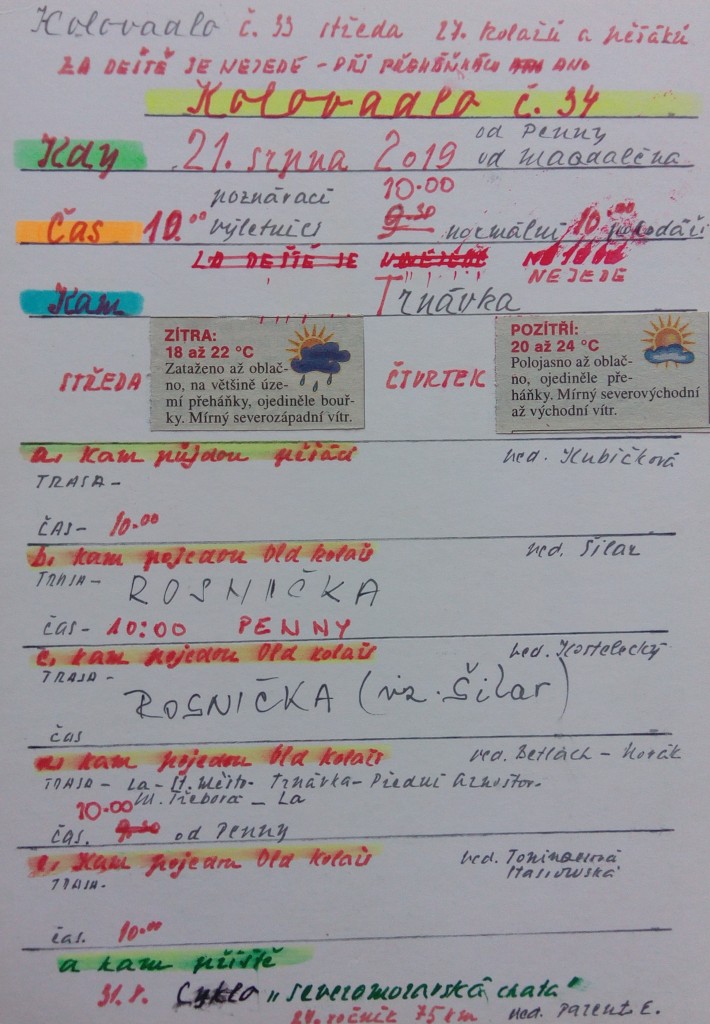 Kolovadlo č. 33 středa 27. kolařů a pěšáků
ZA DEŠTĚ SE NEJEDE - PŘI PŘEHÁŇKÁCH ANO
Kolovadlo č. 34
Kdy 21. srpna 2019 od Penny
od Magdaléna
poznávací 10.00
Čas 10.00 výletníci 9.30 normální 10.00 pohodáři
ZA DEŠTĚ SE
NEJEDE
Kam Trnávka
STŘEDA
ZÍTRA:
18 až 22 °C
Zataženo až oblač-
no, na většině úze-
mí přeháňky, ojediněle bouř-
ky. Mírný severozápadní vítr.
ČTVRTEK
POZÍTŘÍ:
20 až 24 °C
Polojasno až oblač-
no, ojediněle pře-
háňky. Mírný severovýchodní
až východní vítr.
a, kam půjdou pěšáci ved. Kubíčková
TRASA -
ČAS - 10.00
b. kam pojedou Old kolaři ved. Šilar
TRASA - ROSNIČKA
ČAS - 10:00 PENNY
c. kam pojedou Old kolaři ved. Kostelecký
TRASA - ROSNIČKA (viz. Šilar)
ČAS
kam pojedou Old kolaři ved. Betlach - Horák
TRASA - La - St. Město - Trnávka - Přední Arnoštov -
10.00 M. Třebová - La
čas. 9.30 od Penny
Kam pojedou Old kolaři ved.
TRASA -
čas. 10.00
a kam příště
31.8. Cyklo "severomoravská chata"
24. ročník 75 km ved. Parent E.